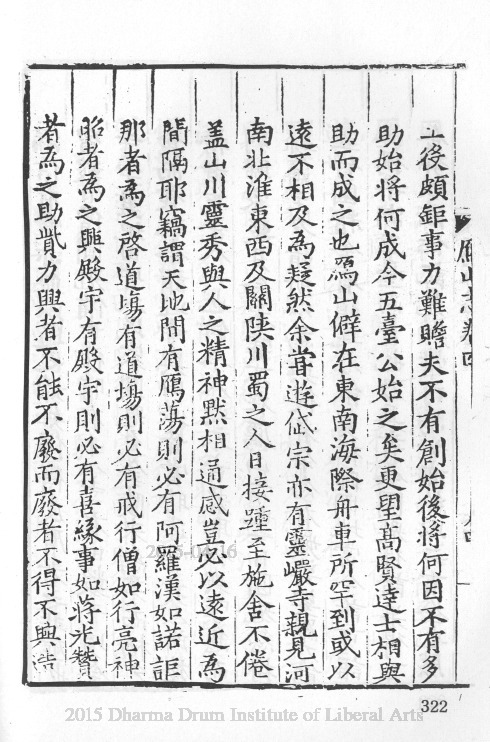 工後頗鉅事力難贍夫不有創始後將何因不有多
助始將何成今五臺公始之矣更望高賢達士相與
助而成之也鴈山僻在東南海際舟車所罕到或以
遠不相及為疑然余甞遊岱宗亦有靈巖寺親見河
南北淮東西及關陝川蜀之人日接踵至施舍不倦
盖山川靈秀與人之精神默相通感豈必以遠近為
間隔耶竊謂天地間有鴈蕩則必有阿羅漢如諾詎
那者為之啓道塲有道塲則必有戒行僧如行亮神
昭者為之興殿宇有殿宇則必有喜緣事如蔣光贊
者為之助貲力興者不能不廢而廢者不得不興
鴈山志卷四
322
2015 Dharma Drum Institute of Liberal Arts